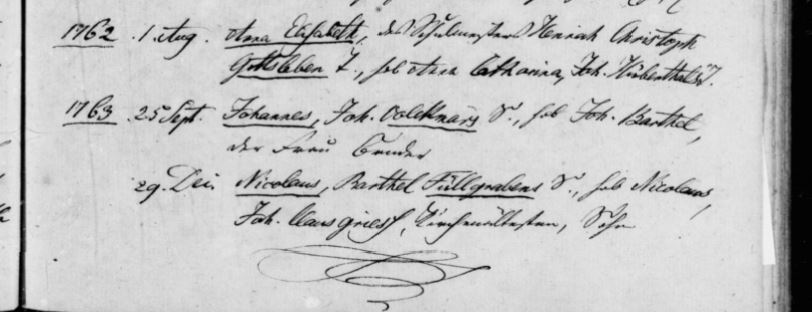 1762 . 1 Aug. Anna Elisabeth, des Schulmeisters Henrich Christoph
Gottsleben T., hob Anna Catharina, Joh. Hübenthals T.
1763 . 25 Sept. Johannes, Joh. Volckmars S., hob Joh. Barthel,
der Frau Bruder
29. Dec. Nicolaus, Barthel Füllgrabens S., hob Nicolaus,
Joh. Claus , Kirchenältesten, Sohn